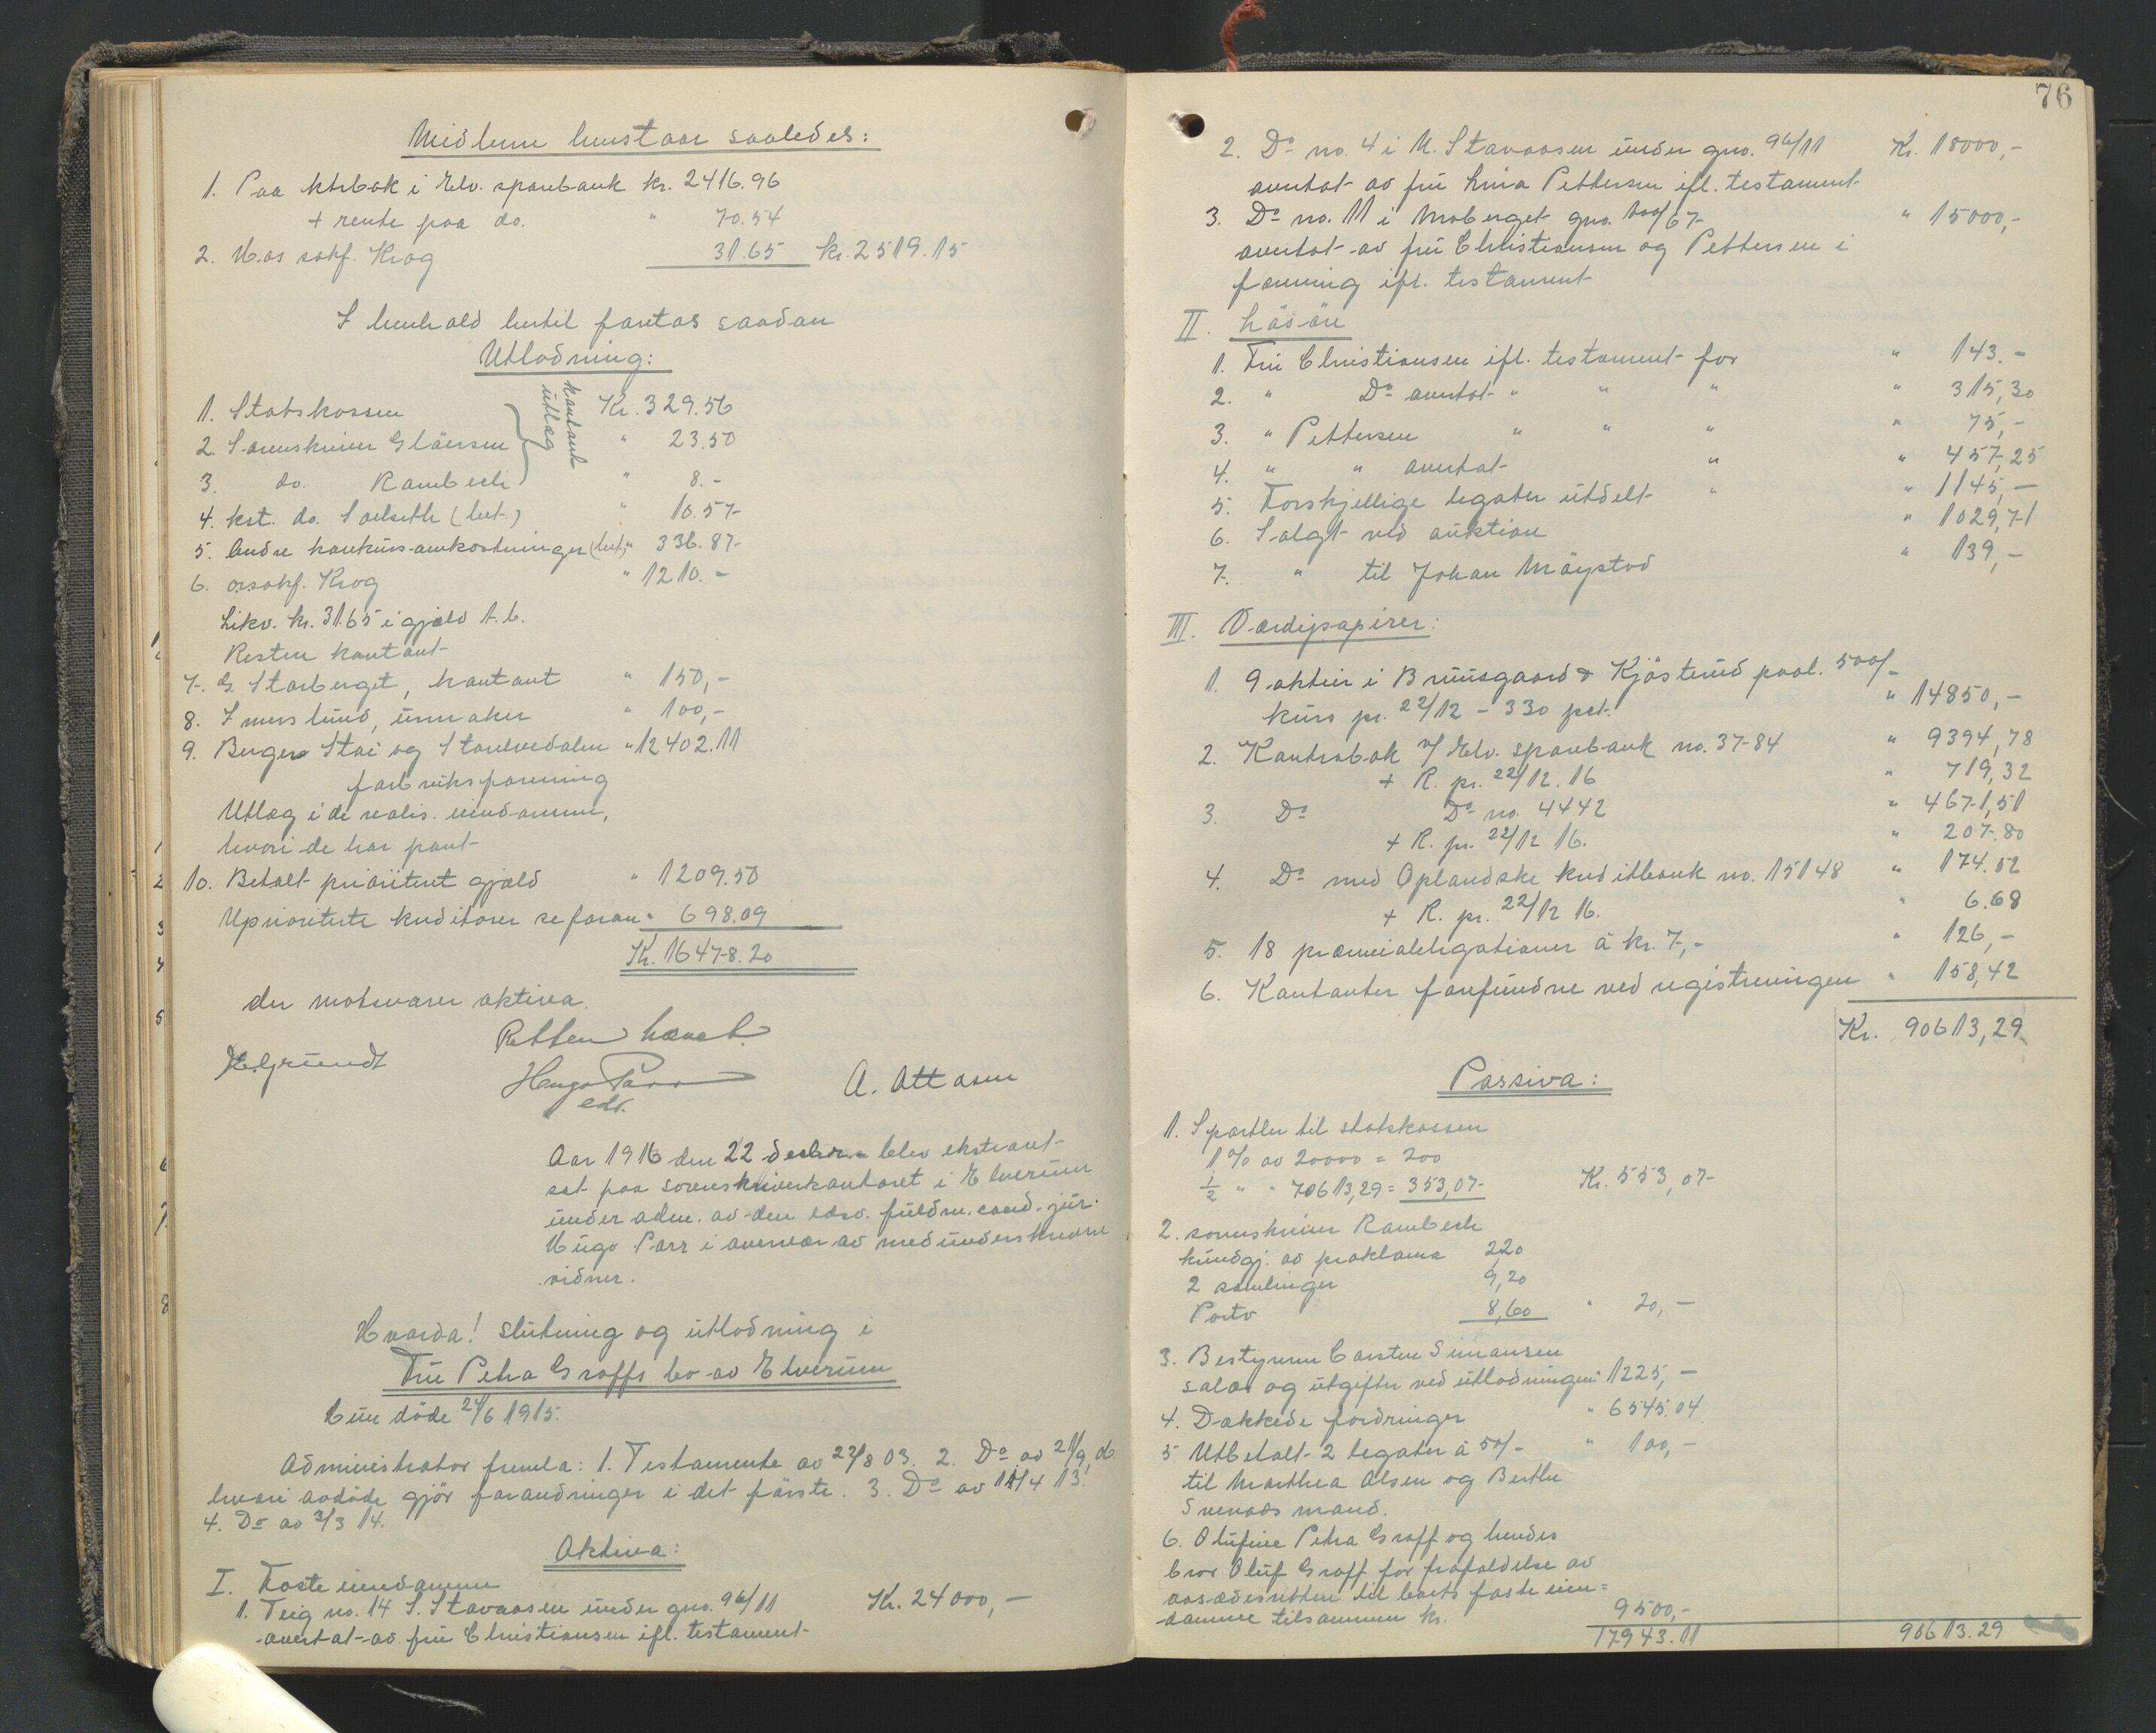 Midlerne henstaar saaledes:
1. Paa ktrbok i Elv. sparebank kr. 2416.96
+ rente paa do. " 70.54
2. Hos sakf. Krog 31.65 kr. 2519.15
I henhold hertil foretas saadan
Utlodning:
1. Statskassen Kr. 329.56
2. Sorenskriver Gläersen " 23.50
3. do. Rambech " 8.-
kontant utlæg
4. kst. do. Saelseth (bet.) " 10.57
5. Andre konkurs-omkostninger (bet.) " 336.87
6. o.r.sakf. Krog " 1210.-
Likv. kr. 31.65 i gjæld t.b.
Resten kontant
7. G. Storberget, kontant " 150,-
8. Immerslund, urmaker " 100,-
9. Berger Stai og Storelvedalen " 12402.11
forbruksforening
Utlæg i de realis. eiendomme,
hvori de har pant
10. Betalt prioritert gjæld " 1209.50
Uprioriterte kreditorer se foran " 698.09
Kr. 16478.20
der motsvarer aktiva.
Retten hævet.
H. Grundt Hugo Parr A. Ottosen
edv.
Aar 1916 den 22 decbr. blev ekstraret
sat paa sorenskriverkontoret i Elverum
under adm. av den edsv. fuldm. cand. jur.
Hugo Parr i overvær av medunderskrevne
vidner.
Hvorda! slutning og utlodning i
Fru Petra Groffs bo av Elverum
Hun døde 24/6 1915.
Administrator fremla: 1. Testamente av 22/8 03. 2. Do av 21/9
hvori avdøde gjør forandringer i det første. 3. Do av 14/4 13.
4. Do av 3/3 14.
Aktiva:
I. Faste eiendomme
1. Teig no. 14 S. Stavaasen under gno. 96/11 Kr. 24000,-
overtat av fru Christiansen ifl. testament
76
2. Do no. 4 i N. Stavaasen under gno. 96/11 Kr. 18000,-
overtat av fru Lina Pettersen ifl. testament
3. Do no. 11 i Moberget gno. 100/67 " 15000,-
overtat av fru Christiansen og Pettersen i
forening ifl. testament
II. Løsøre
1. Fru Christiansen ifl. testament for " 143.-
2. " Do overtat " " " " 315,30
3. " Pettersen " " " " 75,-
4. " " overtat " " 457,25
5. Forskjellige legater utdelt " " 1145,-
6. Solgt ved auktion " 1029,71
7. " til Johan Møystad " 139,-
III. Værdipapirer:
1. 9 aktier i Bruusgaard & Kjøsterud paal. 500/-
kurs pr. 22/12 - 330 pct. " 14850,-
2. Kontrabok v/ Elv. sparebank no. 3784 " 9394,78
+ R. pr. 22/12. 16 " 719,32
3. Do Do no. 4442 " 4671,51
+ R. pr. 22/12 16. " 207.80
4. Do med Oplandske kreditbank no. 15148 " 174.52
+ R. pr. 22/12 16. " 6.68
5. 18 præmieobligationer à kr. 7,- " 126,-
6. Kontanter forefundne ved registreringen " 158,42
Kr. 90613,29
Passiva:
1. Sportler til statskassen
1% av 20000 = 200
1/2 " " 70613,29 = 353,07 Kr. 553,07
2. sorenskriver Rambech
kundgj. av proklama 2,20
2 samlinger 9,20
Porto 8,60 " 20,-
3. Bestyreren Carsten Simonsen
salær og utgifter ved utlodningen 1225,-
4. Dækkede fordringer " 6545.04
5 Utbetalt 2 legater à 50/- " 100,-
til Marthea Olsen og Berthe
Svenødsmand.
6. Olufine Petra Groff og hendes
bror Oluf Groff for frafaldelse av
aasædesretten til boets faste eien=
domme tilsammen kr. 9500,-
17943.11 90613.29